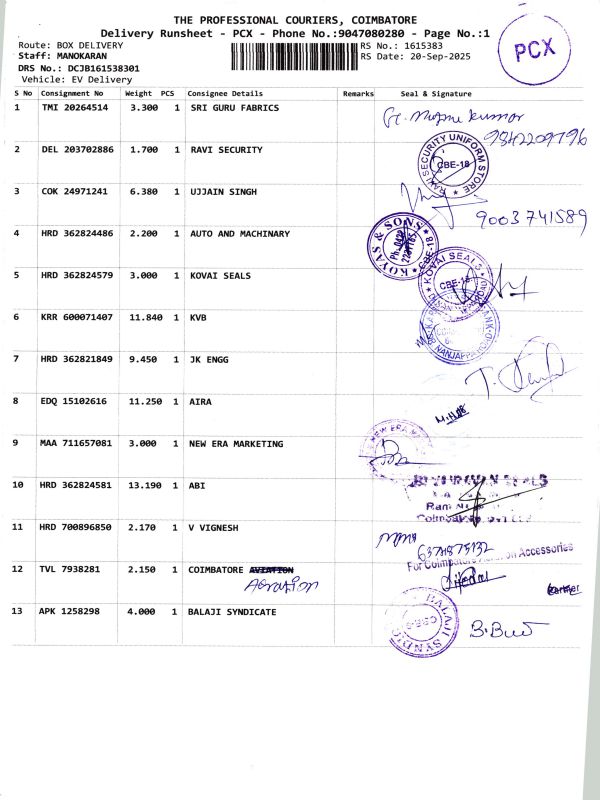 THE PROFESSIONAL COURIERS, COIMBATORE
Delivery Runsheet - PCX - Phone No.:9047080280 - Page No.:1
Route: BOX DELIVERY
RS No.: 1615383
Staff: MANOKARAN
RS Date: 20-Sep-2025
DRS No.: DCJB161538301
Vehicle: EV Delivery
PCX
S No Consignment No Weight PCS Consignee Details Remarks Seal & Signature
1 TMI 20264514 3.300 1 SRI GURU FABRICS
9842209796
2 DEL 203702886 1.700 1 RAVI SECURITY
RAVI SECURITY UNIFORM STORE CBE-18
3 COK 24971241 6.380 1 UJJAIN SINGH
9003741589
4 HRD 362824486 2.200 1 AUTO AND MACHINARY
KOYAS & SONS
5 HRD 362824579 3.000 1 KOVAI SEALS
KOVAI SEALS CBE-18
6 KRR 600071407 11.840 1 KVB
7 HRD 362821849 9.450 1 JK ENGG
8 EDQ 15102616 11.250 1 AIRA
9 MAA 711657081 3.000 1 NEW ERA MARKETING
NEW ERA
10 HRD 362824581 13.190 1 ABI
11 HRD 700896850 2.170 1 V VIGNESH
12 TVL 7938281 2.150 1 COIMBATORE AVIATION
For Coimbatore Accessories
Partner
13 APK 1258298 4.000 1 BALAJI SYNDICATE
BALAJI SYNDIC